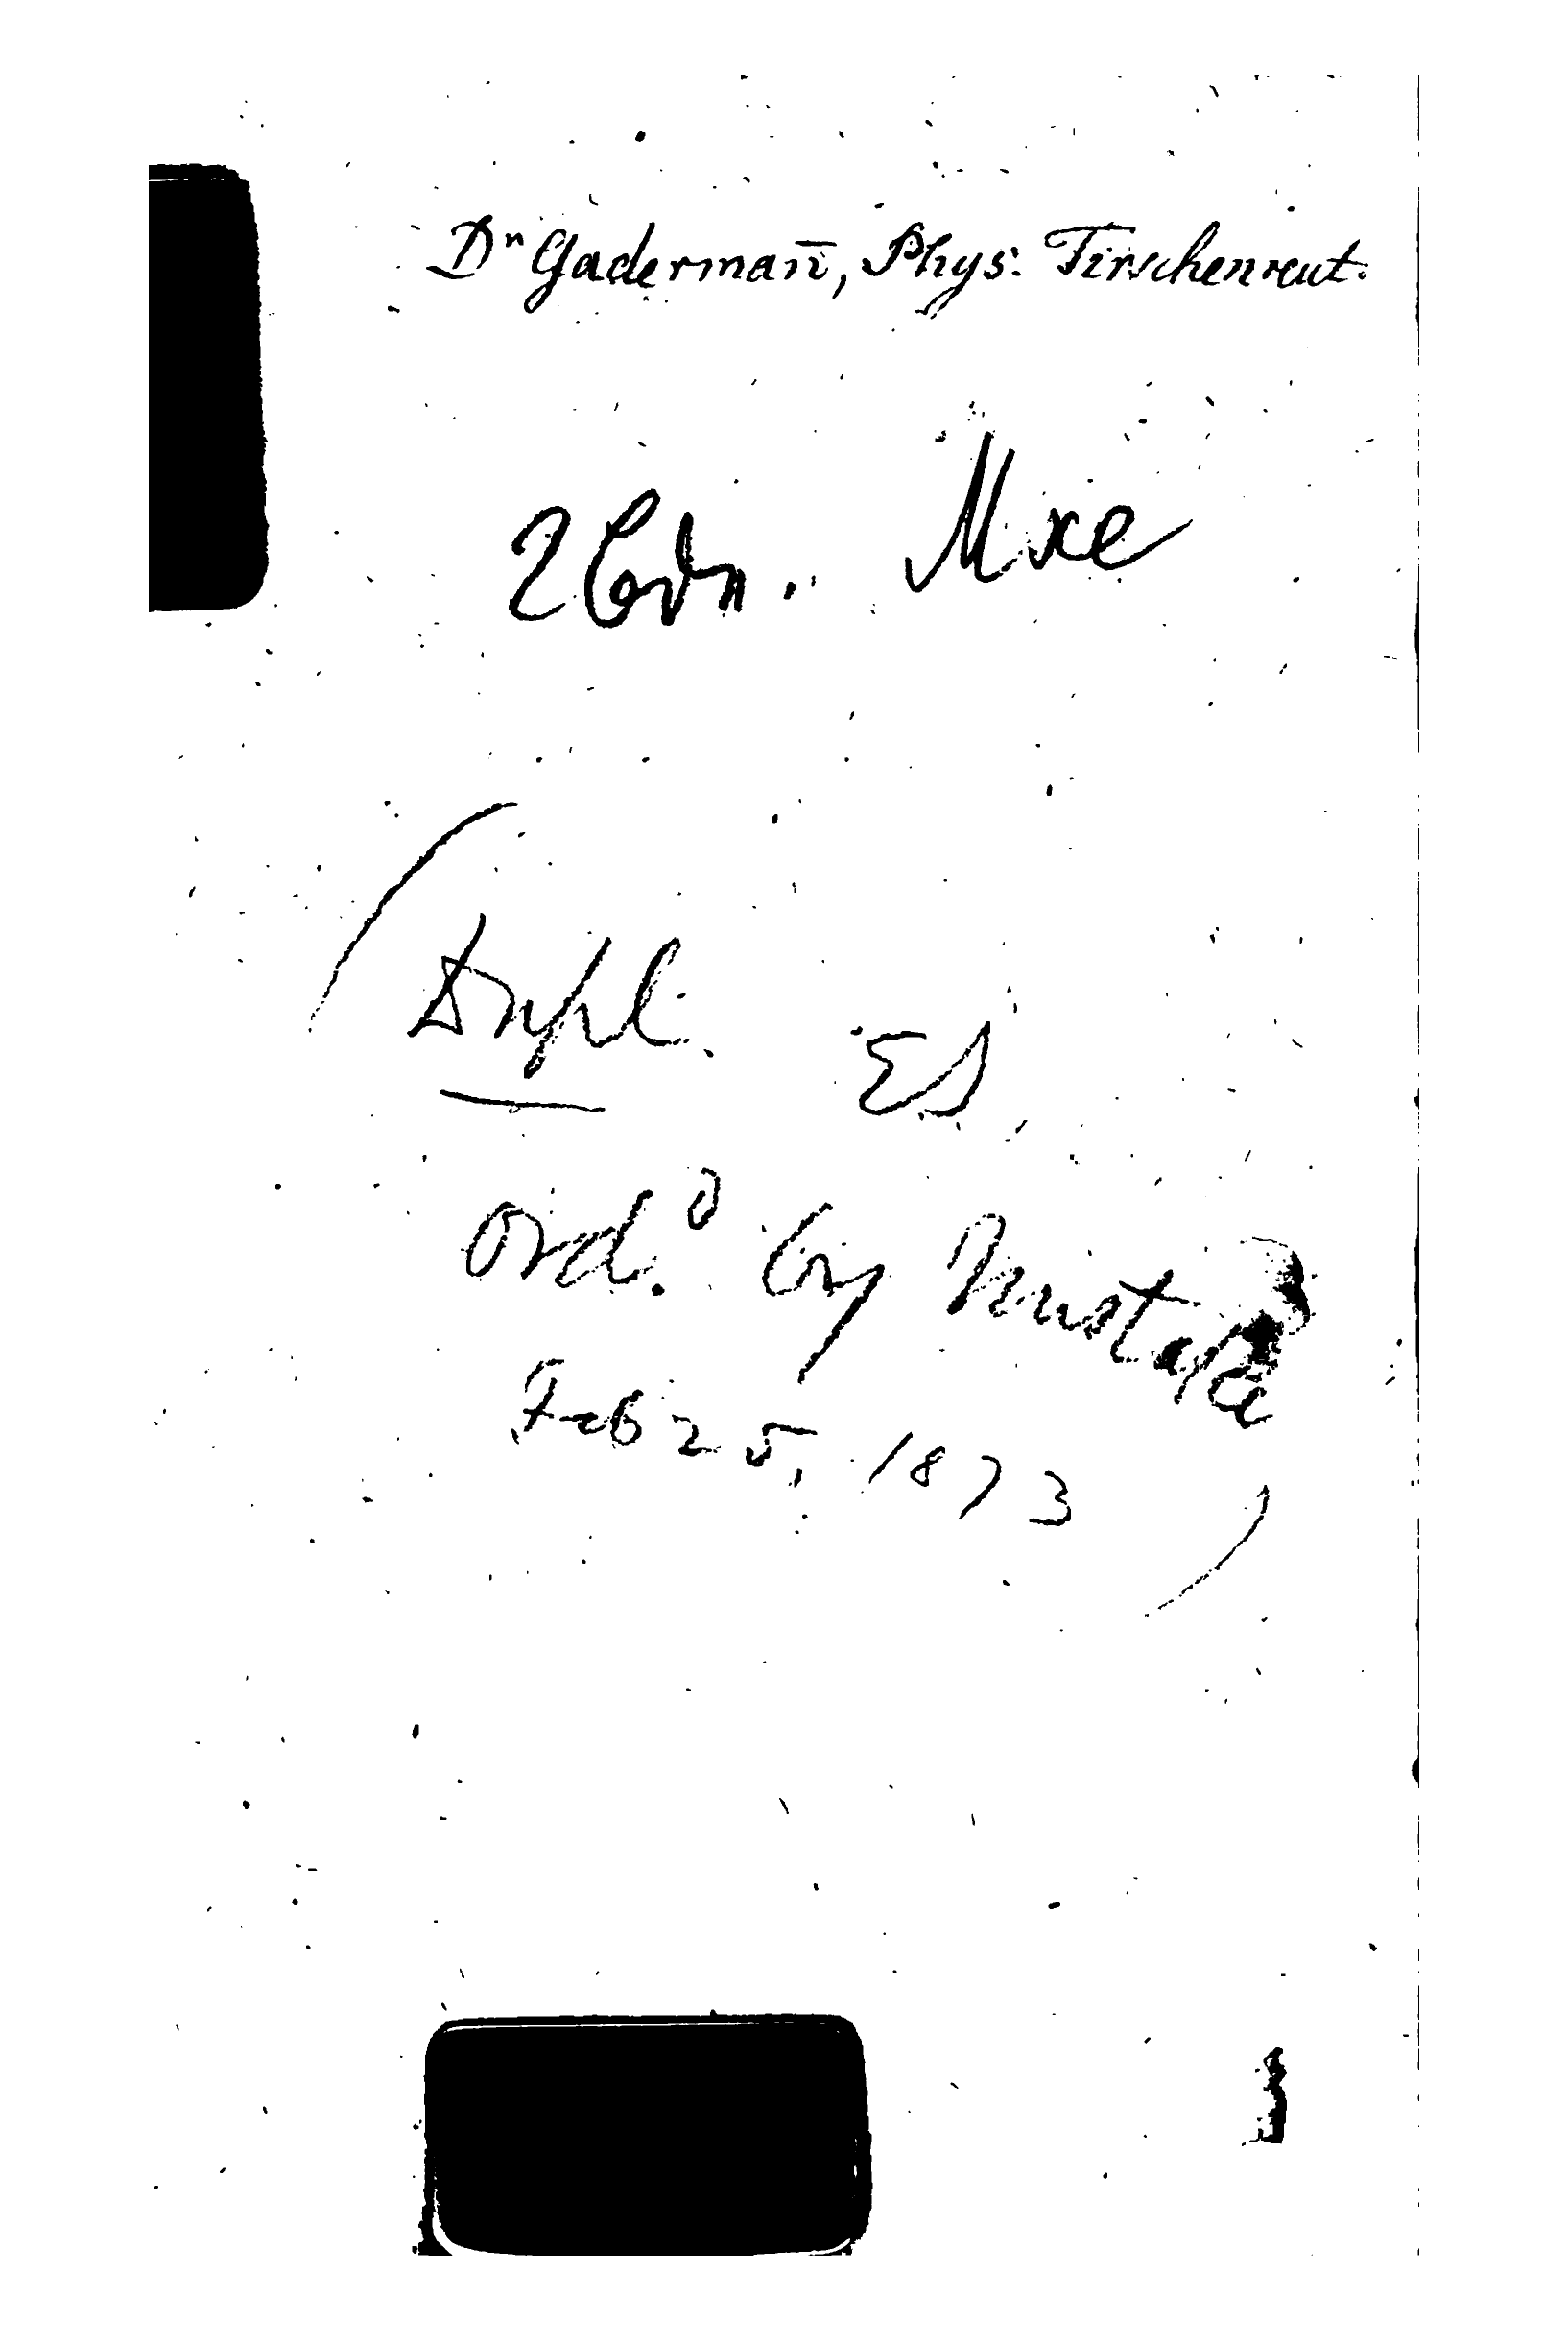 Dr Gadermañ, Phys: Tirschenreut.
2 Bdn. Mxe
(Dupl. ES.
ord.d by mistake
Feb 25, 1873)